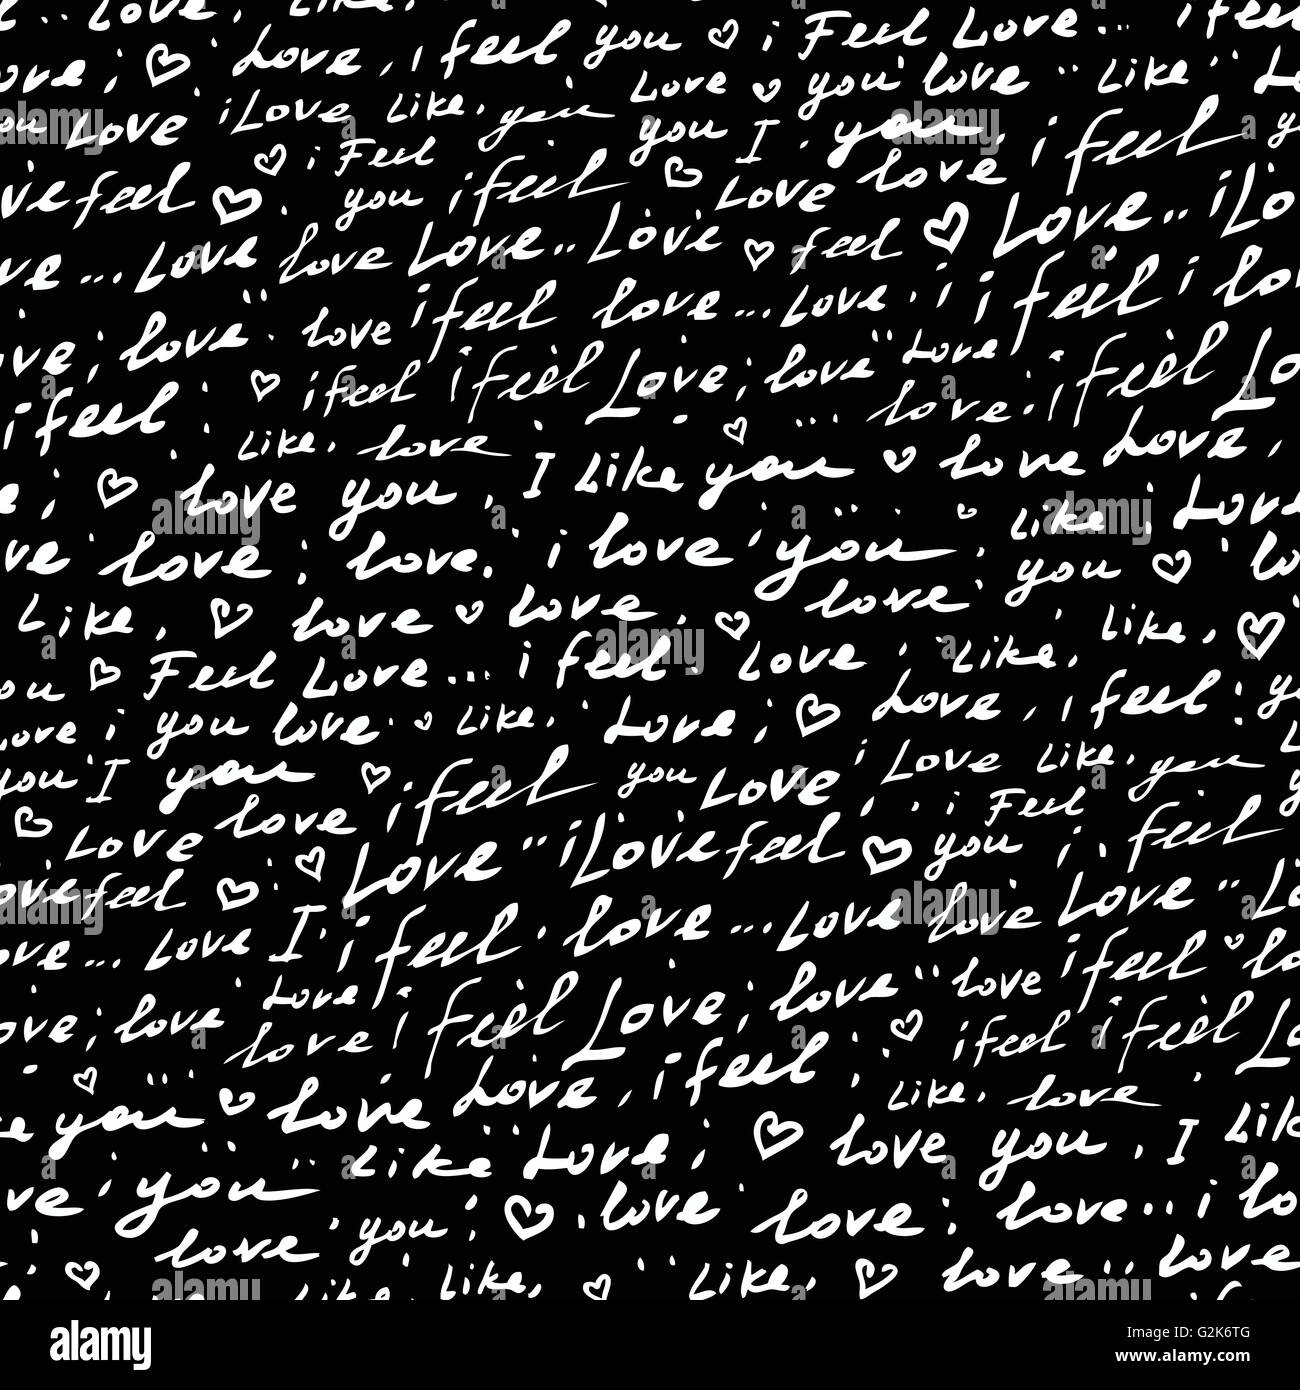 Love, Like,
Love; ♡ Love, i feel you ♡ i Feel Love... i feel
you Love i Love Like, you Love ♡ you love Like
you I you, i feel
love feel ♡ ♡ i Feel you i feel ♡ Love love
love... Love love Love.. Love ♡ feel ♡ Love.. i Lo
love; love love i feel love... Love. i i feel i lo
i feel ♡ i feel i feel Love; love Love i feel Lo
Like, love ♡ love.
♡ love you, I Like you ♡ love Love,
love love; love, i love you Like, Love
Like, ♡ love ♡ love, ♡ love you ♡ lo
you ♡ Feel Love... i feel Love Like, Like, ♡
Love i you love ♡ Like, Love; ♡ Love, i feel
you I you ♡ i feel you Love, i Love Like, you
♡ Love love i Feel
Love feel ♡ ♡ Love i Love feel ♡ you i feel
love... Love I i feel love... Love love Love Lo
love; love Love i feel Love; love love i feel ♡ lo
love ♡ i feel i feel Lo
♡ Like, love
Like you ♡ love Love, i feel
love you Like Love; ♡ love you, I Like
love you; ♡ love love; love.. i lo
♡ Like, ♡ Like, ♡ love.. love
alamy
Image ID: G2K6TG
www.alamy.com